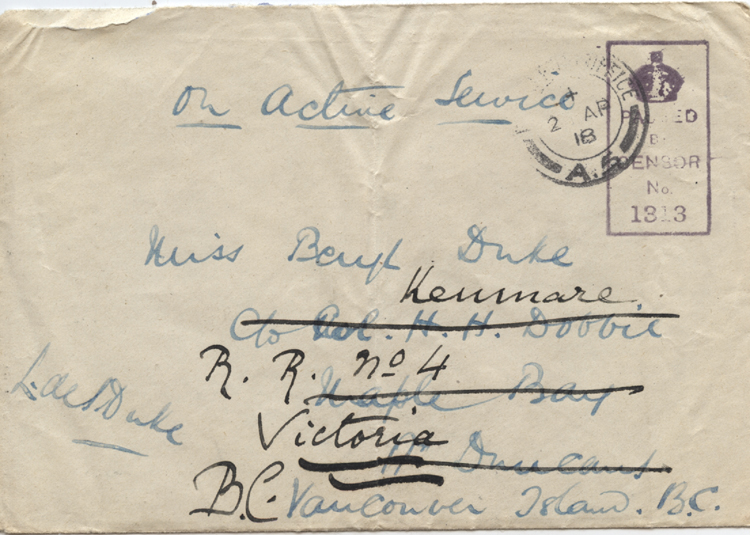 On Active Service
OFFICE
X
2 AP
18
A.
PASSED
BY
CENSOR
No.
1313
Miss Beryl Duke
Kenmare.
c/o Col. H. H. Dobbie
R. R. No 4
Maple Bay
L. de S Duke
Victoria
Nr Duncans
B.C. Vancouver Island. B.C.